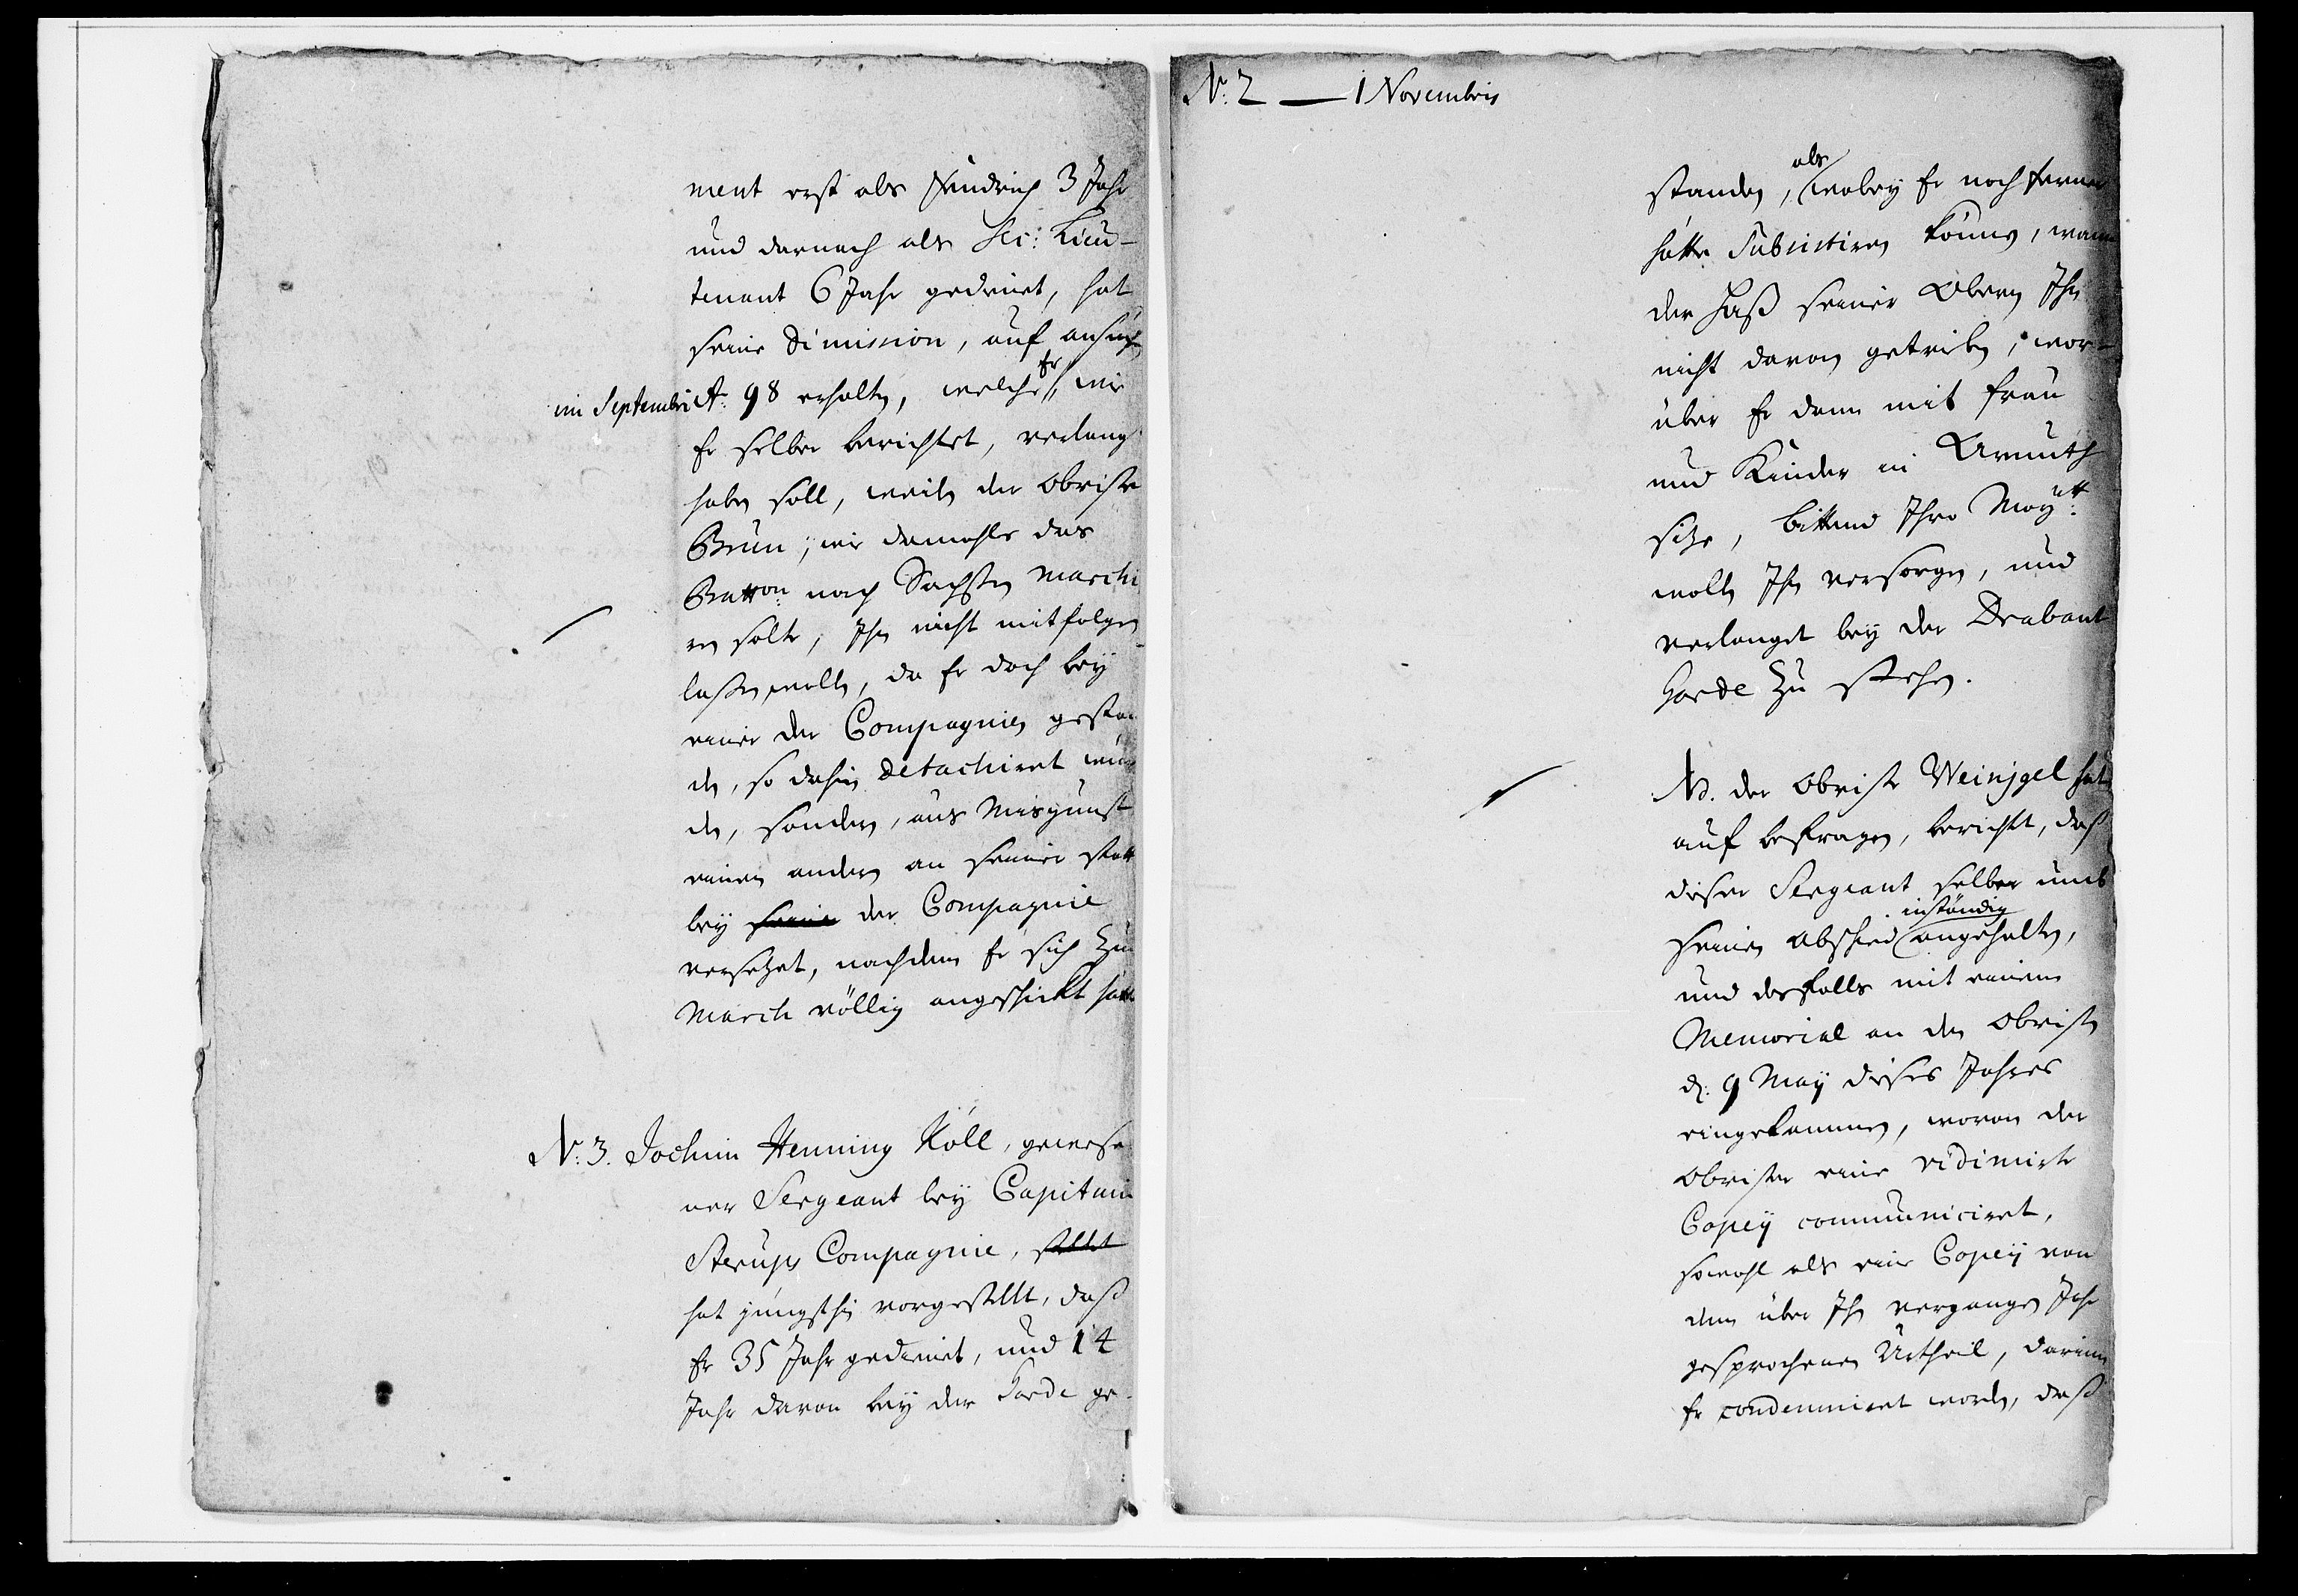 ment erst als Fendrich 3 Jahr
und darnach als Sec: Lieu-
tenant 6 Jahr gedienet, hat
seine Dimission, auf ansuch
im Septembri Ao: 98 erhalten, welche er, wie
Er selber berichtet, verlang
haben soll, weilen der Obrister
Brün, wie damahls das
Batton: nach Sachsen marchi
ren solte, Ihn nicht mitfolgen
laßen wollen, da Er doch bey
einer der Compagnien gestan
den, so dahin detachiret wür
den, sondern, aus Misgunst
einen andern an seiner statt
bey seine der Compagnie
versetzet, nachdem Er sich zum
March völlig angeschickt hätte
N: 3. Jochim Henning Köll, gewese
ner Sergeant bey Capitain
Sterups Compagnie, stellet
hat jüngsthin vorgestellt, daß
Er 35 Jahr gedienet, und 14
Jahr davon bey der Garde ge-
N: 2 — 1 Novembris
standen, als wobey Er noch ferner
hätte Subsistiren können, wann
der Haß seiner Obern Ihn
nicht davon getrieben, wor-
über Er dann mit Frau
und Kinder in Armuth
sitze, bittend Ihro Maytt:
wolle Ihn versorgen, und
verlanget bey der Drabant
Garde zu stehen.
NB. der Obrister Weinigel hat
auf befragen, berichtet, daß
dieser Sergeant selber umb
seinen Abschied inständig angehalten,
und desfalls mit einem
Memorial an den Obristen
d: 9 May dieses Jahres
eingekommen, wovon der
Obrister eine vidimirte
Copey communiciret,
sowohl als eine Copey von
dem über Ihn vergangen Jahr
gesprochenen Urtheil, darinn
Er condemniret worden, daß